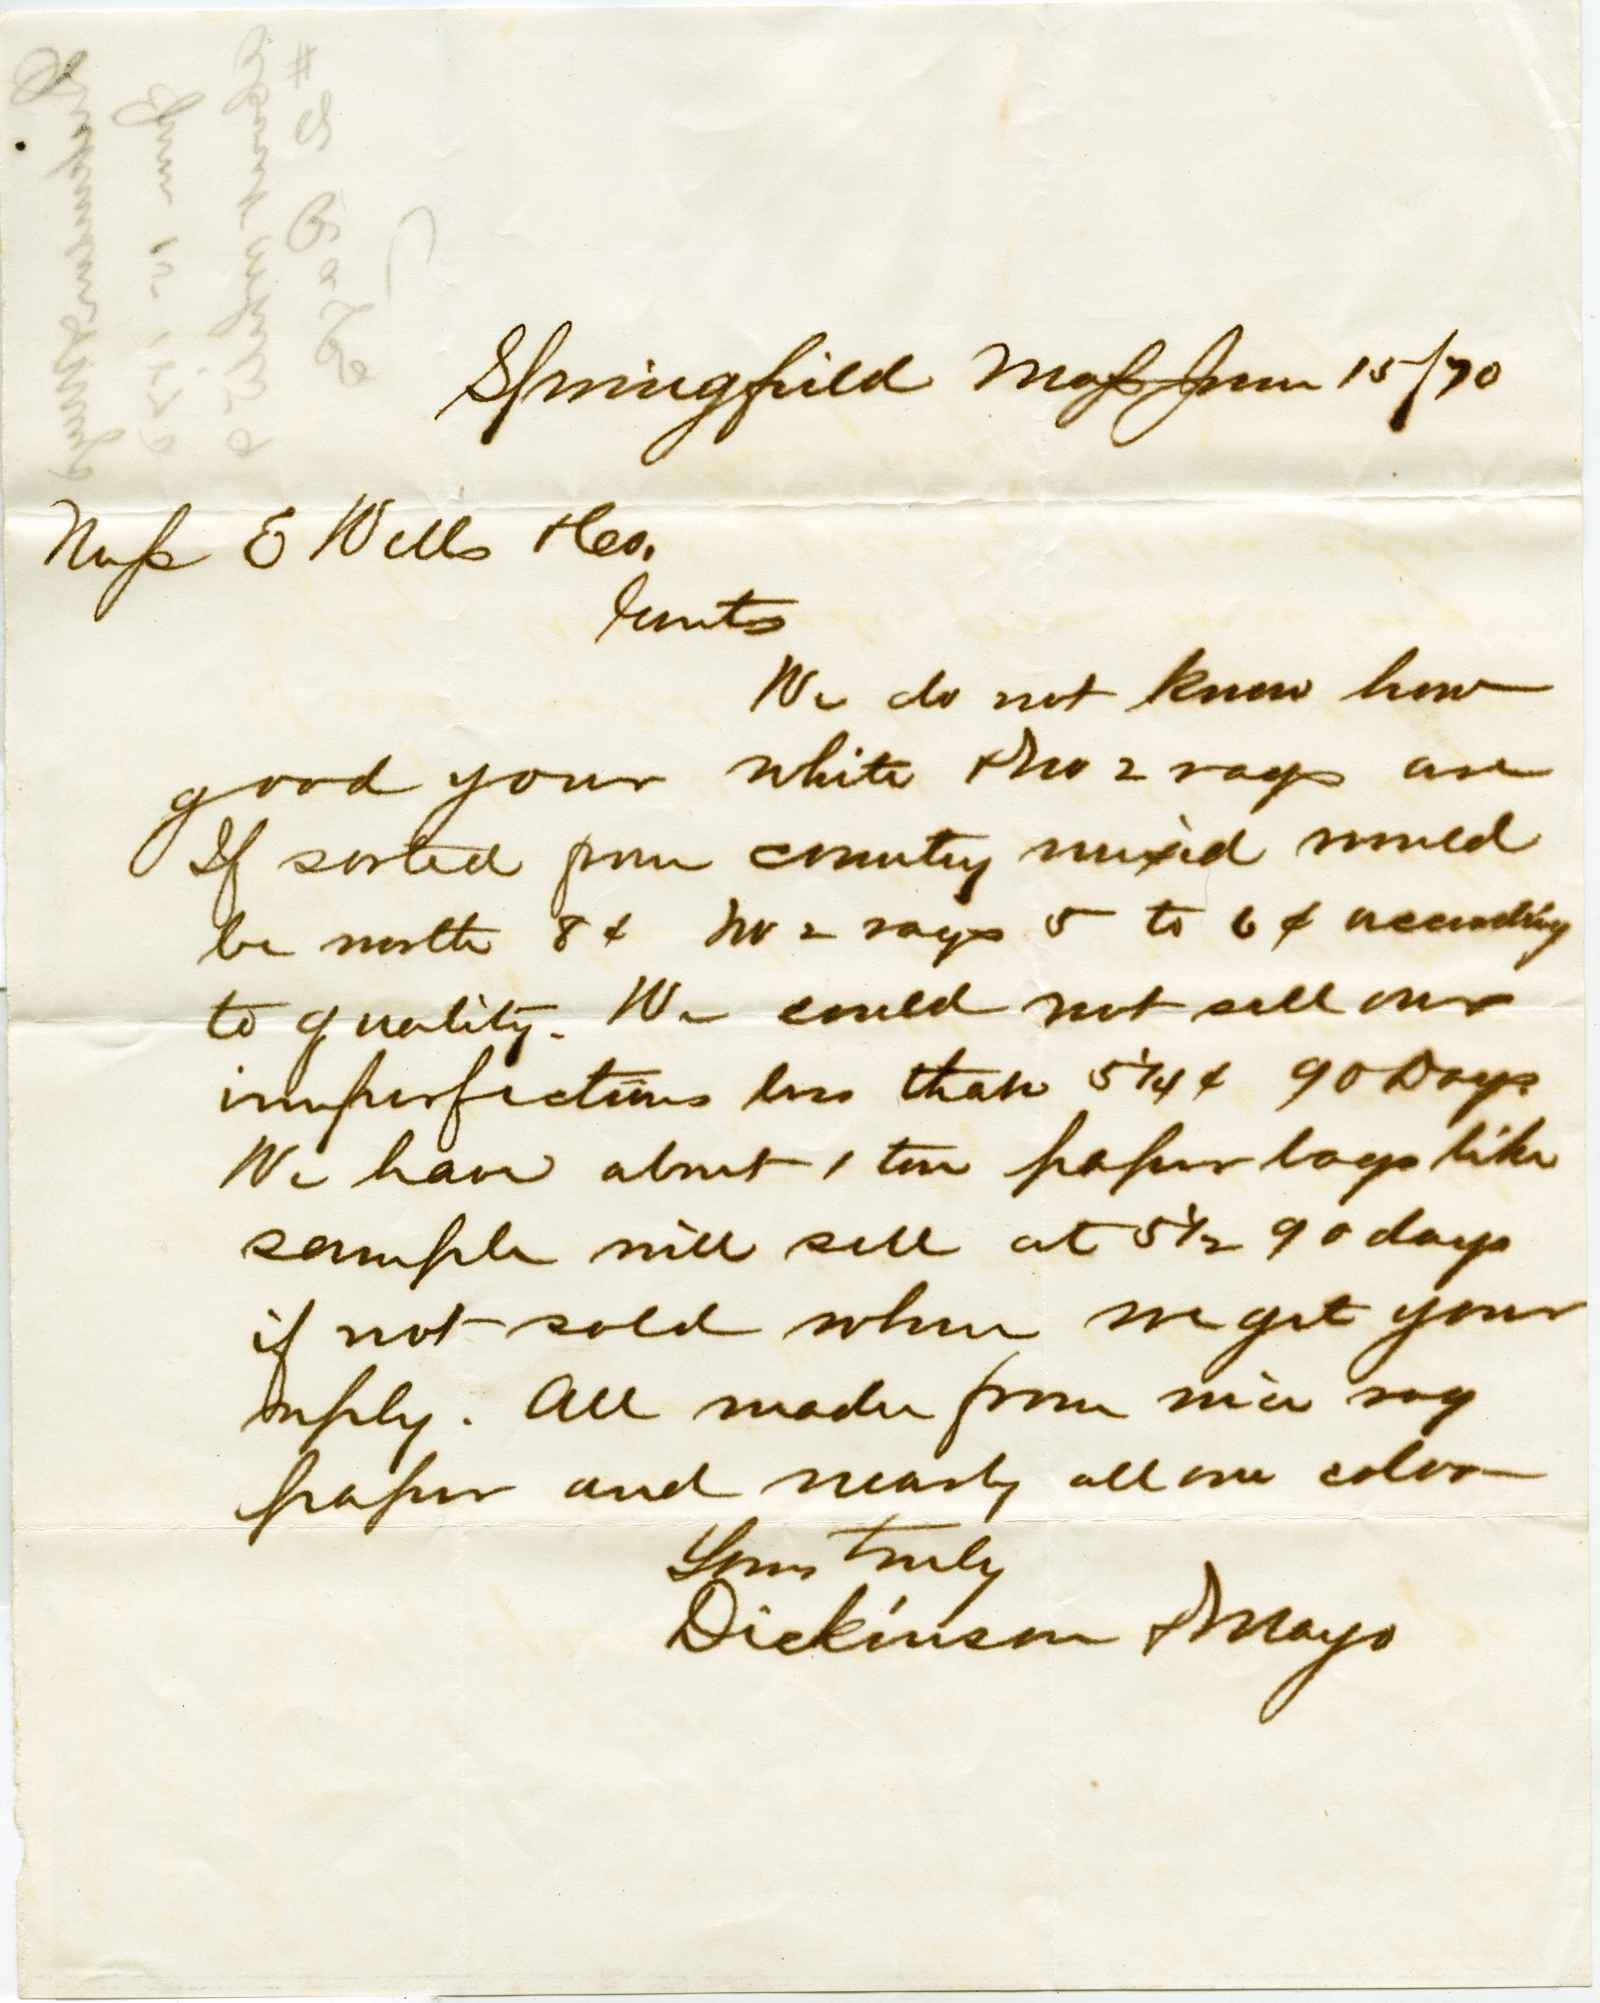 Springfield Mass June 15/70
Mess E Wells & Co.
Gents
We do not know how
good your white & No 2 rags are
If sorted from country mixed would
be worth 8¢ No 2 rags 5 to 6¢ according
to quality. We could not sell our
imperfections less than 5 1/4¢ 90 Days
We have about 1 ton paper bags like
sample will sell at 5 1/2 90 days
if not sold when we get your
reply. All made from nice rag
paper and nearly all one color
Yours truly
Dickinson & Mayo